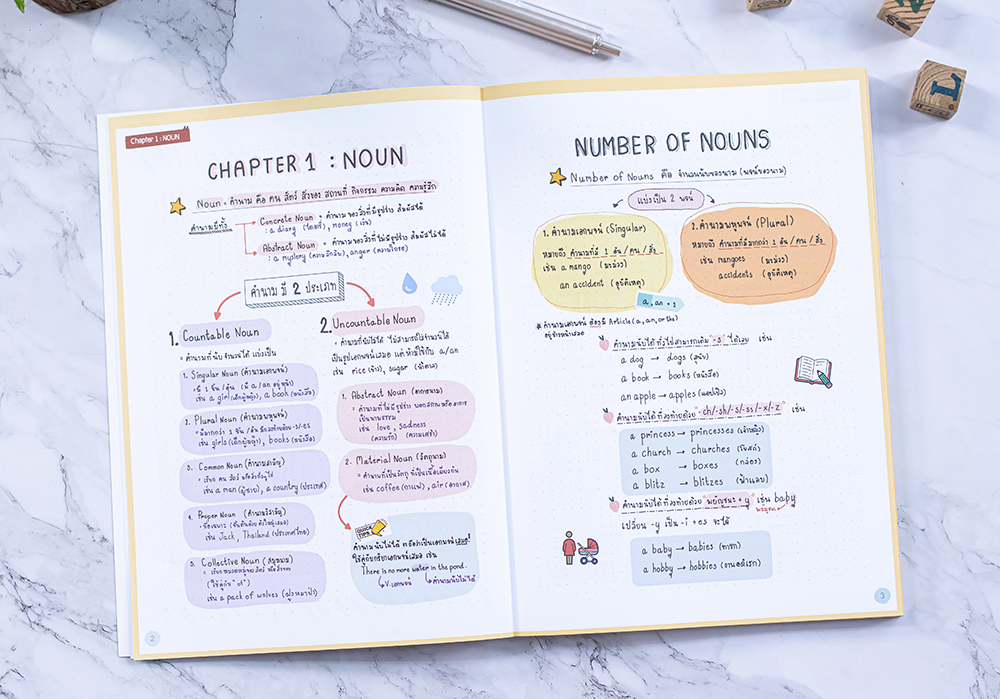 Chapter 1 : NOUN
CHAPTER 1 : NOUN
Noun = คำนาม คือ คน สัตว์ สิ่งของ สถานที่ กิจกรรม ความคิด ความรู้สึก
คำนามมีทั้ง
Concrete Noun = คำนามของสิ่งที่มีรูปร่าง สัมผัสได้
: a diary (ไดอารี่), money (เงิน)
Abstract Noun = คำนามของสิ่งที่ไม่มีรูปร่าง สัมผัสไม่ได้
: a mystery (ความลึกลับ), anger (ความโกรธ)
คำนาม มี 2 ประเภท
1. Countable Noun
= คำนามที่นับจำนวนได้ แบ่งเป็น
1. Singular Noun (คำนามเอกพจน์)
= มี 1 ชิ้น/อัน (มี a/an อยู่หน้า)
เช่น a girl (เด็กผู้หญิง), a book (หนังสือ)
2. Plural Noun (คำนามพหูพจน์)
= มีมากกว่า 1 ชิ้น/อัน มักลงท้ายด้วย -s/-es
เช่น girls (เด็กผู้หญิง), books (หนังสือ)
3. Common Noun (คำนามสามัญ)
= เรียก คน สัตว์
เช่น a man (ผู้ชาย), a country (ประเทศ)
4. Proper Noun (คำนามวิสามัญ)
= ชื่อเฉพาะ (ขึ้นต้นด้วยตัวใหญ่เสมอ)
เช่น Jack, Thailand (ประเทศไทย)
5. Collective Noun (สมุหนาม)
(ใช้คู่กับ "of")
เช่น a pack of wolves (ฝูงหมาป่า)
2. Uncountable Noun
= คำนามที่นับไม่ได้ ไม่สามารถใช้จำนวนได้
เป็นรูปเอกพจน์เสมอ แต่ห้ามใช้กับ a/an
เช่น rice (ข้าว), sugar (น้ำตาล)
1. Abstract Noun (อาการนาม)
= คำนามที่ไม่มีรูปร่าง บอกสภาพหรืออาการ
เป็นนามธรรม
เช่น love, sadness
(ความรัก) (ความเศร้า)
2. Material Noun (วัตถุนาม)
= คำนามที่เป็นวัตถุ ที่เป็นเนื้อเดียวกัน
เช่น coffee (กาแฟ), air (อากาศ)
QUICK TIPS
คำนามนับไม่ได้ จะถือว่าเป็นเอกพจน์เสมอ!
ใช้คู่กับกริยาเอกพจน์เสมอ เช่น
There is no more water in the pond.
V.เอกพจน์ คำนามนับไม่ได้
2
NUMBER OF NOUNS
Number of Nouns คือ จำนวนนับของนาม (พจน์ของนาม)
แบ่งเป็น 2 พจน์
1. คำนามเอกพจน์ (Singular)
หมายถึง คำนามที่มี 1 อัน/คน/สิ่ง
เช่น a mango (มะม่วง)
an accident (อุบัติเหตุ)
a, an = 1
2. คำนามพหูพจน์ (Plural)
หมายถึง คำนามที่มีมากกว่า 1 อัน/คน/สิ่ง
เช่น mangoes (มะม่วง)
accidents (อุบัติเหตุ)
* คำนามเอกพจน์ ต้องมี Article (a, an, or the)
อยู่ข้างหน้าเสมอ
คำนามนับได้ทั่วไปสามารถเติม -s ได้เลย เช่น
a dog → dogs (สุนัข)
a book → books (หนังสือ)
an apple → apples (แอปเปิล)
คำนามนับได้ ที่ลงท้ายด้วย -ch/-sh/-s/-ss/-x/-z เช่น
a princess → princesses (เจ้าหญิง)
a church → churches (โบสถ์)
a box → boxes (กล่อง)
a blitz → blitzes (ฟ้าแลบ)
คำนามนับได้ ที่ลงท้ายด้วย "พยัญชนะ + y" เช่น baby
พยัญชนะ
เปลี่ยน -y เป็น -i + es จะได้
a baby → babies (ทารก)
a hobby → hobbies (งานอดิเรก)
3